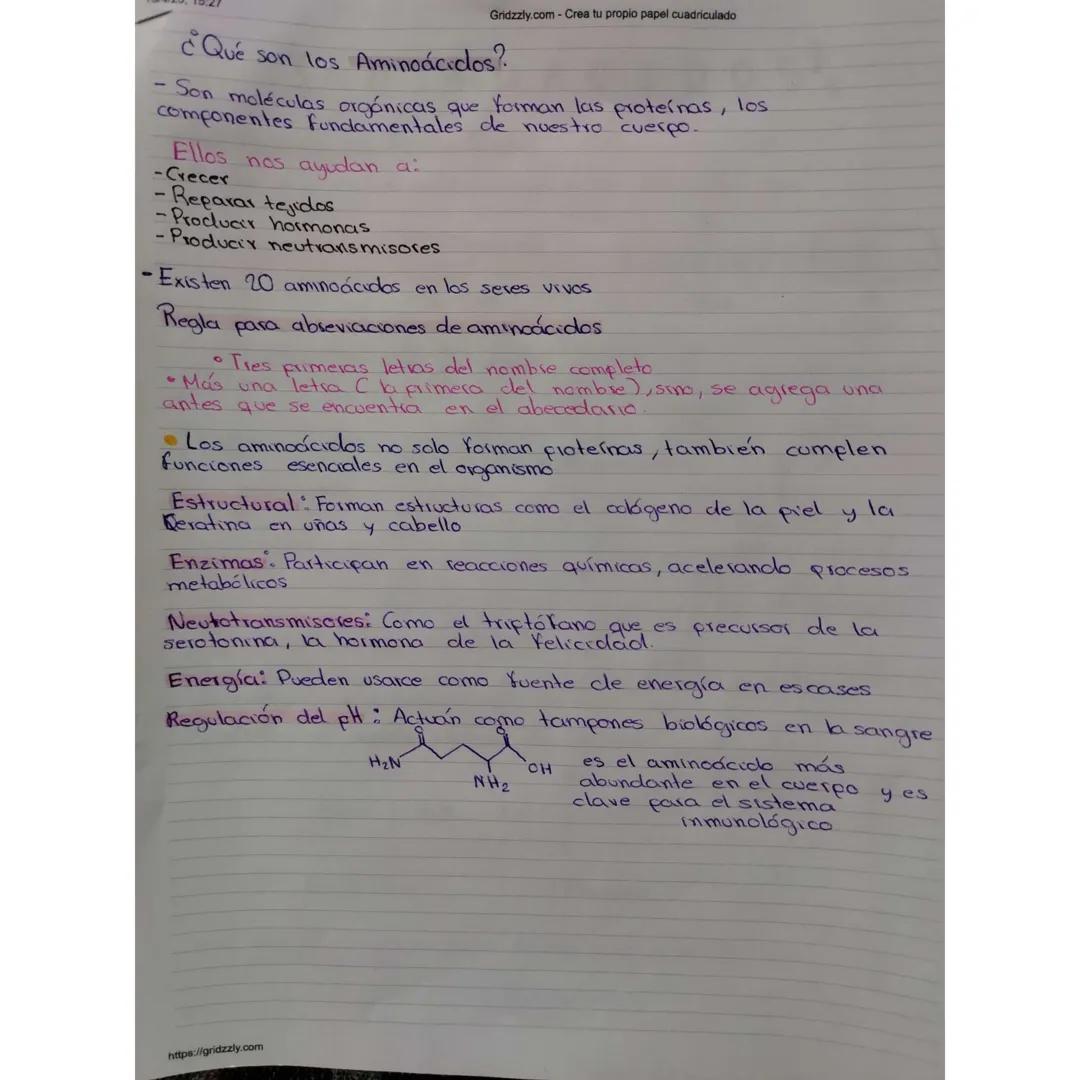 15:27
Gridzzly.com - Crea tu propio papel cuadriculado
¿Qué son los Aminoácidos?
- Son moléculas orgánicas que forman las proteínas, los
componentes fundamentales de nuestro cuerpo.
Ellos nos ayudan a:
- Crecer
- Reparar tejidos
- Producir hormonas
- Producir neutransmisores
- Existen 20 aminoácidos en los seres vivos
Regla para abreviaciones de aminoácidos
• Tres primeras letras del nombre completo
• Más una letra ( la primera del nombre), sino, se agrega una
antes que se encuentra en el abecedario.
• Los aminoácidos no solo forman proteínas, también cumplen
funciones esenciales en el organismo
Estructural: Forman estructuras como el colágeno de la piel y la
Keratina en uñas y cabello
Enzimas: Participan en reacciones químicas, acelerando procesos
metabólicos
Neutotransmisores: Como el triptófano que es precursor de la
serotonina, la hormona de la felicidad.
Energía: Pueden usarce como fuente de energía en escases
Regulación del pH: Actúan como tampones biológicos en la sangre
O O
H2N OH
NH2
es el aminoácido más
abundante en el cuerpo y es
clave para el sistema
inmunológico
https://gridzzly.com